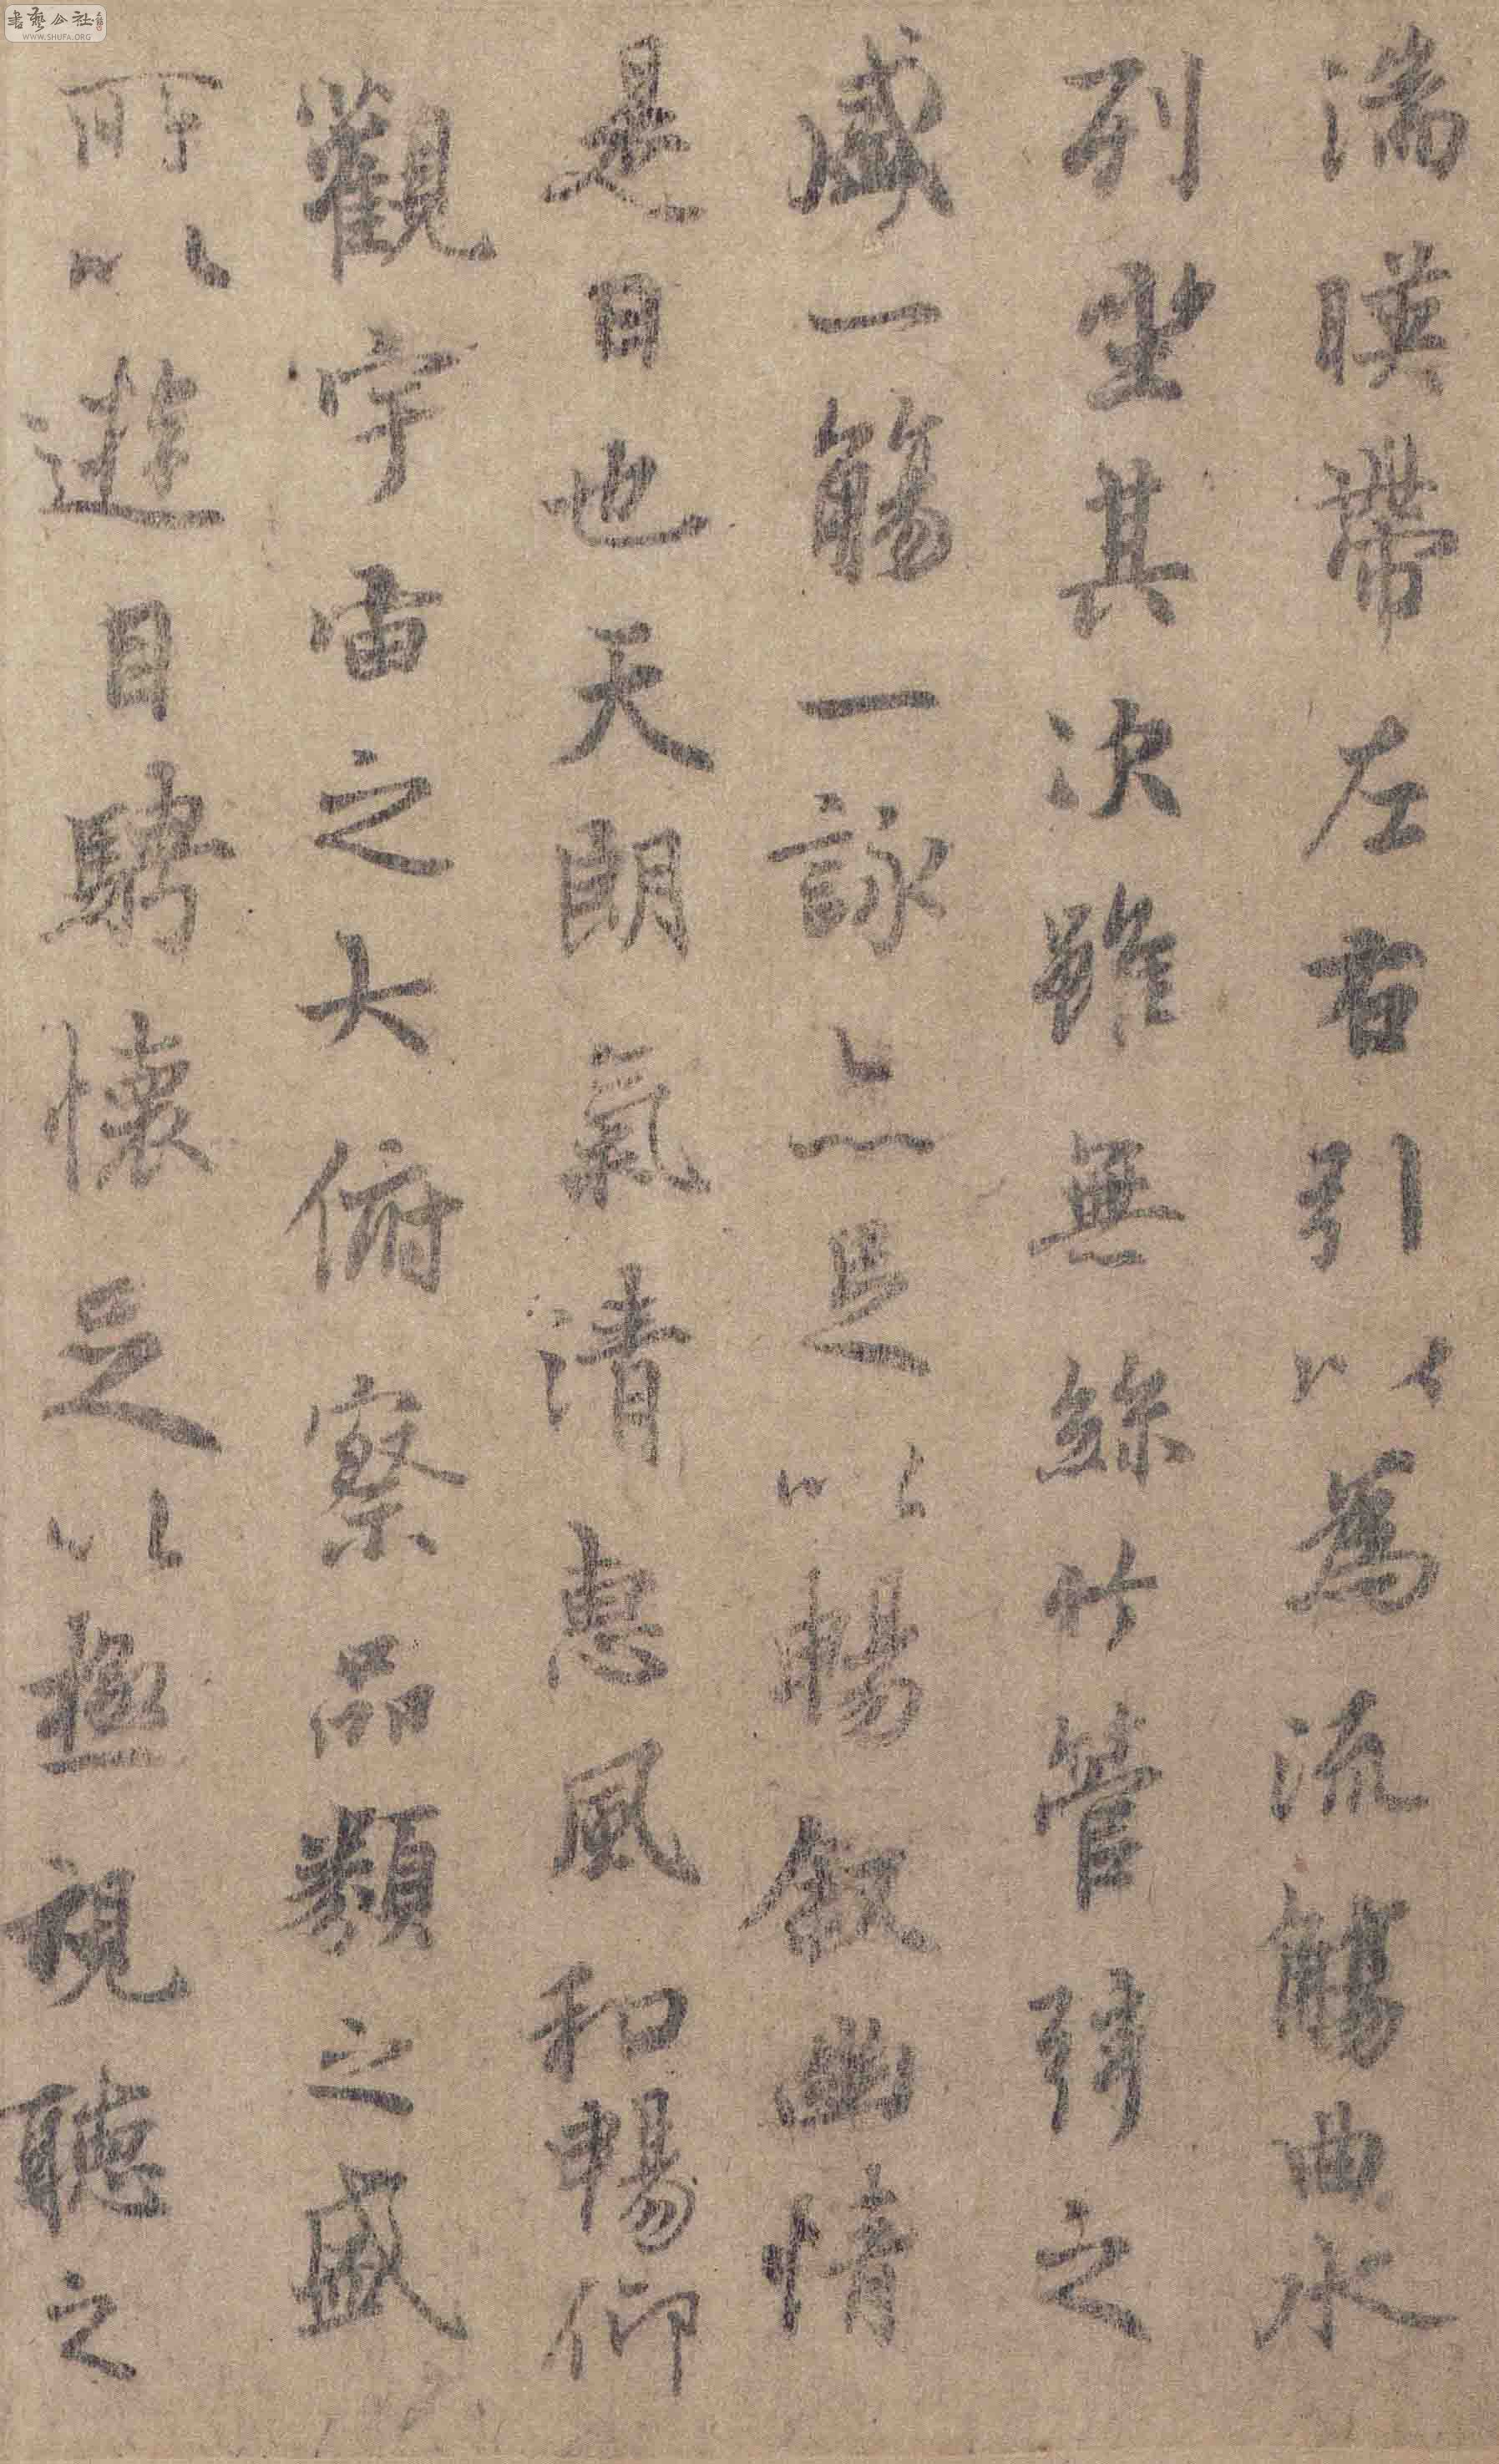 湍暎帶左右引以為流觴曲水
列坐其次雖無絲竹管弦之
盛一觴一詠亦足以暢敘幽情
是日也天朗氣清惠風和暢仰
觀宇宙之大俯察品類之盛
所以遊目騁懷足以極視聽之
書藝公社
WWW.SHUFA.ORG